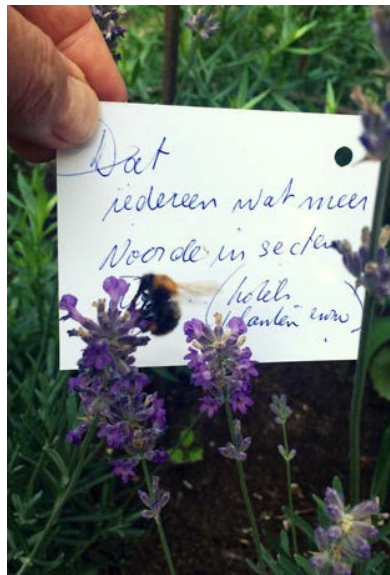 Dat
iedereen wat meer
voor de insecten
(hotels
planten enzo)